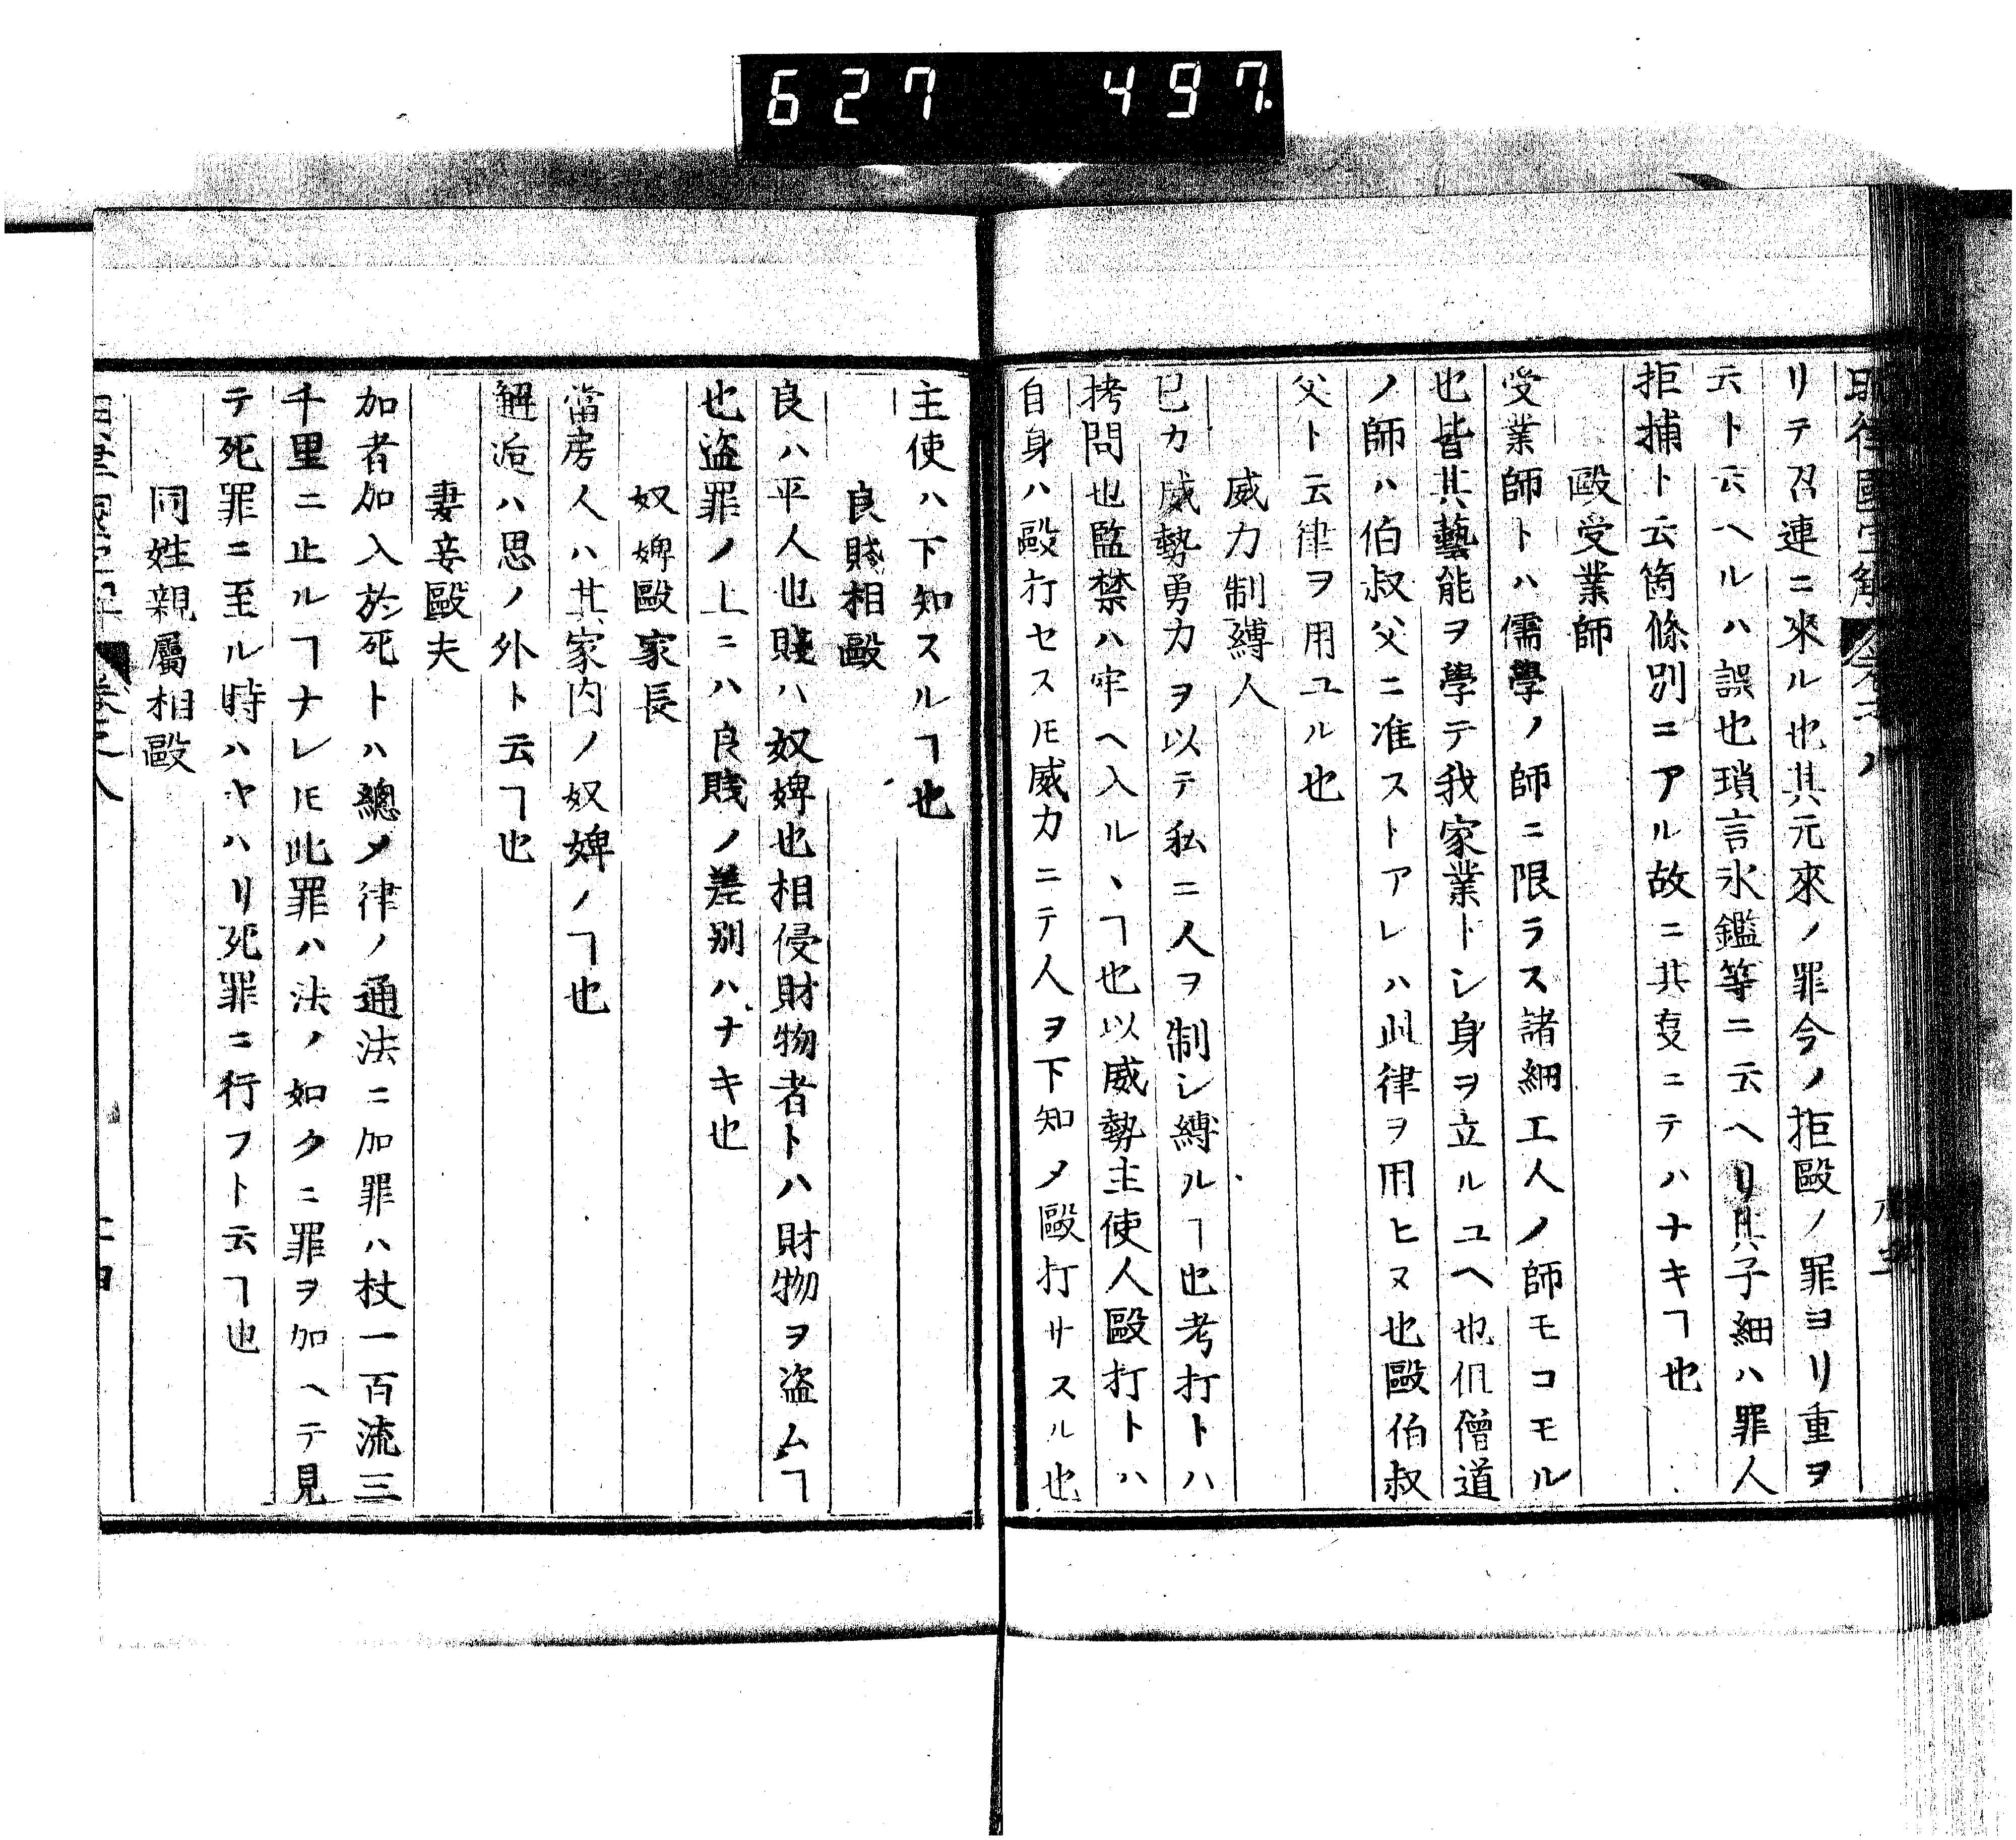 627 497
リテ召連ニ來ル也其元來ノ罪今ノ拒毆ノ罪ヨリ重ヲ
云ト云ヘルハ誤也瑣言氷鑑等ニ云ヘリ其子細ハ罪人
拒捕ト云箇條別ニアル故ニ其㕝ニテハナキヿ也
毆受業師
受業師トハ儒學ノ師ニ限ラス諸細工人ノ師モコモル
也皆其藝能ヲ學テ我家業トシ身ヲ立ルユヘ也但僧道
ノ師ハ伯叔父ニ准ストアレハ此律ヲ用ヒヌ也毆伯叔
父ト云律ヲ用ユル也
威力制縛人
已カ威勢勇力ヲ以テ私ニ人ヲ制シ縛ルヿ也考打トハ
拷問也監禁ハ牢ヘ入ルヽヿ也以威勢主使人毆打トハ
自身ハ毆打セスㇳモ威力ニテ人ヲ下知メ毆打サスル也
主使ハ下知スルヿ也
良賤相毆
良ハ平人也賤ハ奴婢也相侵財物者トハ財物ヲ盗ムヿ
也盗罪ノ上ニハ良賤ノ差別ハナキ也
奴婢毆家長
當房人ハ其家内ノ奴婢ノヿ也
邂逅ハ思ノ外ト云ヿ也
妻妾毆夫
加者加入於死トハ總メ律ノ通法ニ加罪ハ杖一百流三
千里ニ止ルヿナレㇳモ此罪ハ法ノ如クニ罪ヲ加ヘテ見
テ死罪ニ至ル時ハヤハリ死罪ニ行フト云ヿ也
同姓親屬相毆